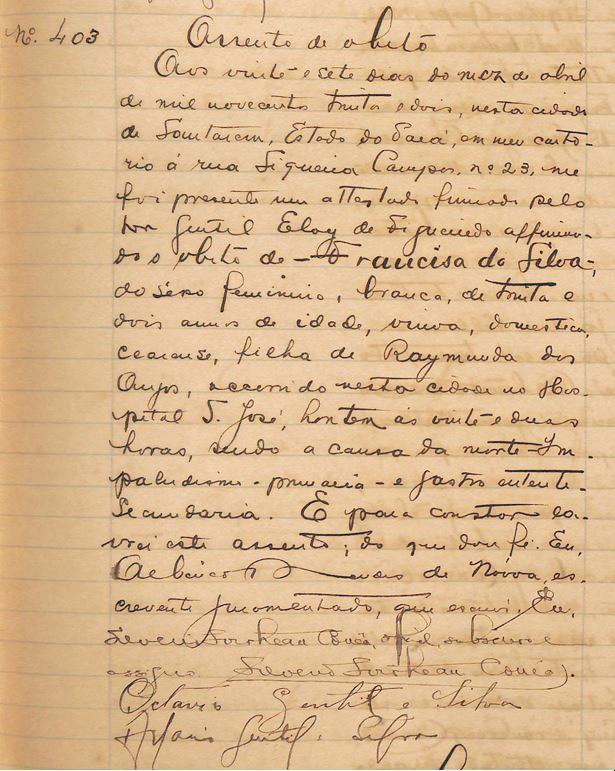 Nº 403
Assento de obito
Aos vinte e sete dias do mez de abril
de mil novecentos trinta e dois, nesta cidade
de Santarem, Estado do Pará, em meu carto-
rio á rua Siqueira Campos, nº 23, me
foi presente um attestado firmado pelo
Gentil Eloy de Figueiredo affirman-
do o obito de - Francisa da Silva,
do sexo feminino, branca, de trinta e
dois annos de idade, viuva, domestica,
cearense, filha de Raymunda dos
Anjos, occorrido nesta cidade no Hos-
pital S. José, hontem ás vinte e duas
horas, sendo a causa da morte - Im-
paludismo - primaria - e gastro enterite -
Secundaria. E para constar la-
vrei este assento; do que dou fé. Eu,
de Nóvoa, es-
crevente juramentado, que escrevi. Eu,
official, subscrevo e
assigno.
Octavio Gentil e Silva
Gentil e Silva